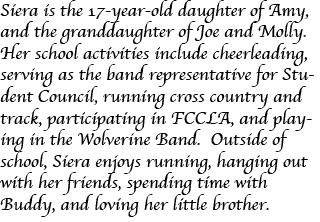 Siera is the 17-year-old daughter of Amy,
and the granddaughter of Joe and Molly.
Her school activities include cheerleading,
serving as the band representative for Stu-
dent Council, running cross country and
track, participating in FCCLA, and play-
ing in the Wolverine Band.  Outside of
school, Siera enjoys running, hanging out
with her friends, spending time with
Buddy, and loving her little brother.